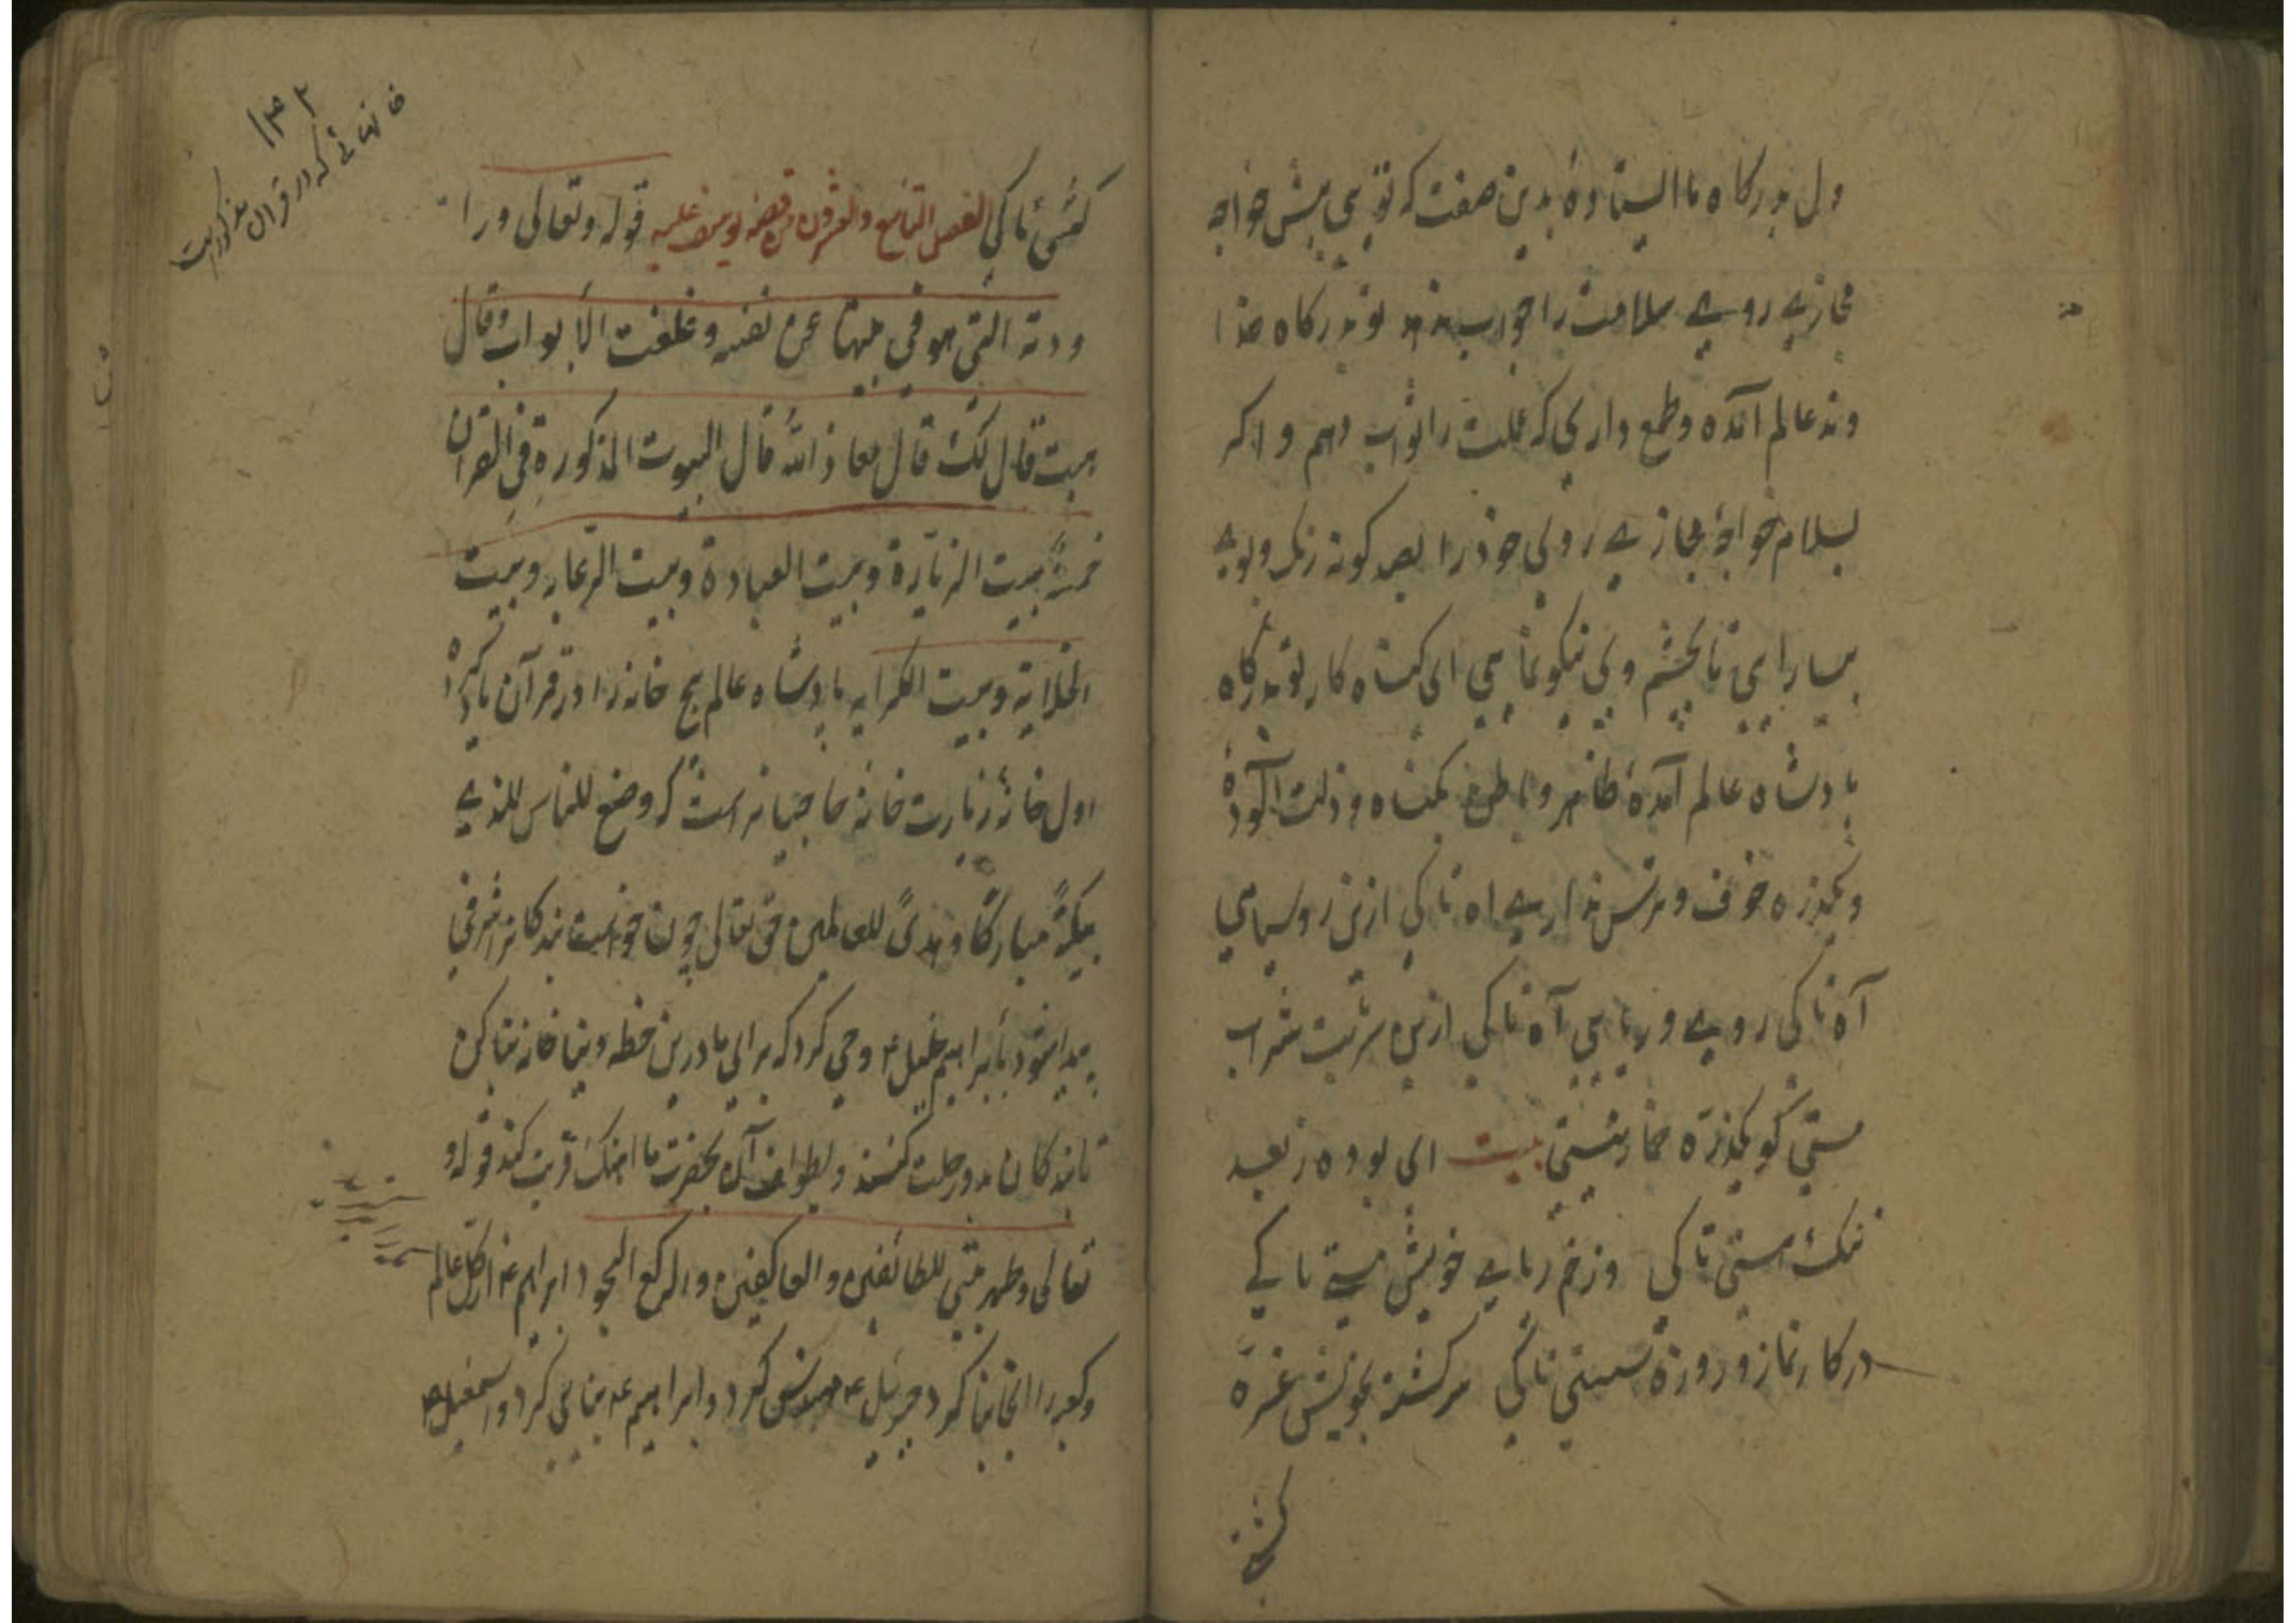 دل بدرگاه ما ایستادهٔ بدین صفت که توئی پیش خواجه
مجازی روی سلامت را جواب ندهد تو بدرگاه خدا
وند عالم آمده و طمع داری که عملت را ثواب دهم و اگر
بسلام خواجهٔ مجازی روی خود را بصد گونه رنگ و بوی
بیارایی تا بچشم وی نیکو نمایی ای گناه کار تو بدرگاه
پادشاه عالم آمدهٔ ظاهر و باطن بگناه و ذلت آلودهٔ
و یکذره خوف و ترس نداری اه تا کی ازین روسیاهی
آه تا کی روی و ریایی آه تا کی ازین شربت شراب
مستی کو یکذره خمار نیستی بیت ای بوده ز بعد
ننگ هستی تا کی وز خم ریای خویش مستی تا کی
در کار نماز و روزه سستی تا کی سرگشته بخویش غره
گشتی
۱۴۲
خانهائے که در قرآن مذکورست
گشتی تا کی الفصل التاسع والعشرون من قصه یوسف علیه قوله وتعالی ورا
ودته التی هو فی بیتها عن نفسه وغلقت الأبواب وقال
هیت قال لک قال معاذ الله قال البیوت المذکورة فی القران
خمسة بیت الزیارة وبیت العبادة وبیت الرعایه وبیت
الخلایة وبیت الکرایه پادشاه عالم پنج خانه را در قرآن یاد کرده
اول خانهٔ زیارت خانهٔ حاجیانه است که وضع للناس للذی
ببکة مبارکًا وهدیً للعالمین حق تعالی چون خواست بندکانرا شرفی
پیدا شود بابراهیم خلیل ع وحی کرد که برای ما درین خطه دنیا خانه بنا کن
تا بندکان بدو رحلت کنند و بطواف آن بحضرت ما اهنک قربت کنند قوله و
تعالی وطهر بیتی للطائفین والعاکفین والرکع السجود ابراهیم ع از کل عالم
وکعبه را انجا بنا کرد جبرئیل ع مهندسی کرد و ابراهیم ع بنایی کرد و اسمعیل ع